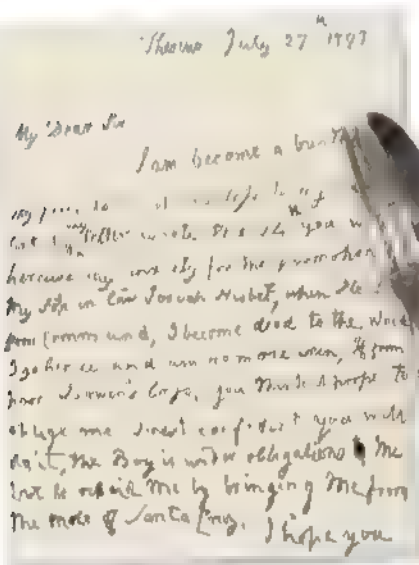 Theseus July 27th 1797
My Dear Sir
I am become a burthen
my
letter wrote the 24 you
perceive my anxiety for the promotion
My son in law Josiah Nisbet, when I
from Command, I become dead to the World
I go hence and am no more seen, If from
you think it proper to
oblige me I rest confident you will
do it, the Boy is under obligations to Me
but he repaid Me by bringing Me from
the mole of Santa Cruz. I hope you